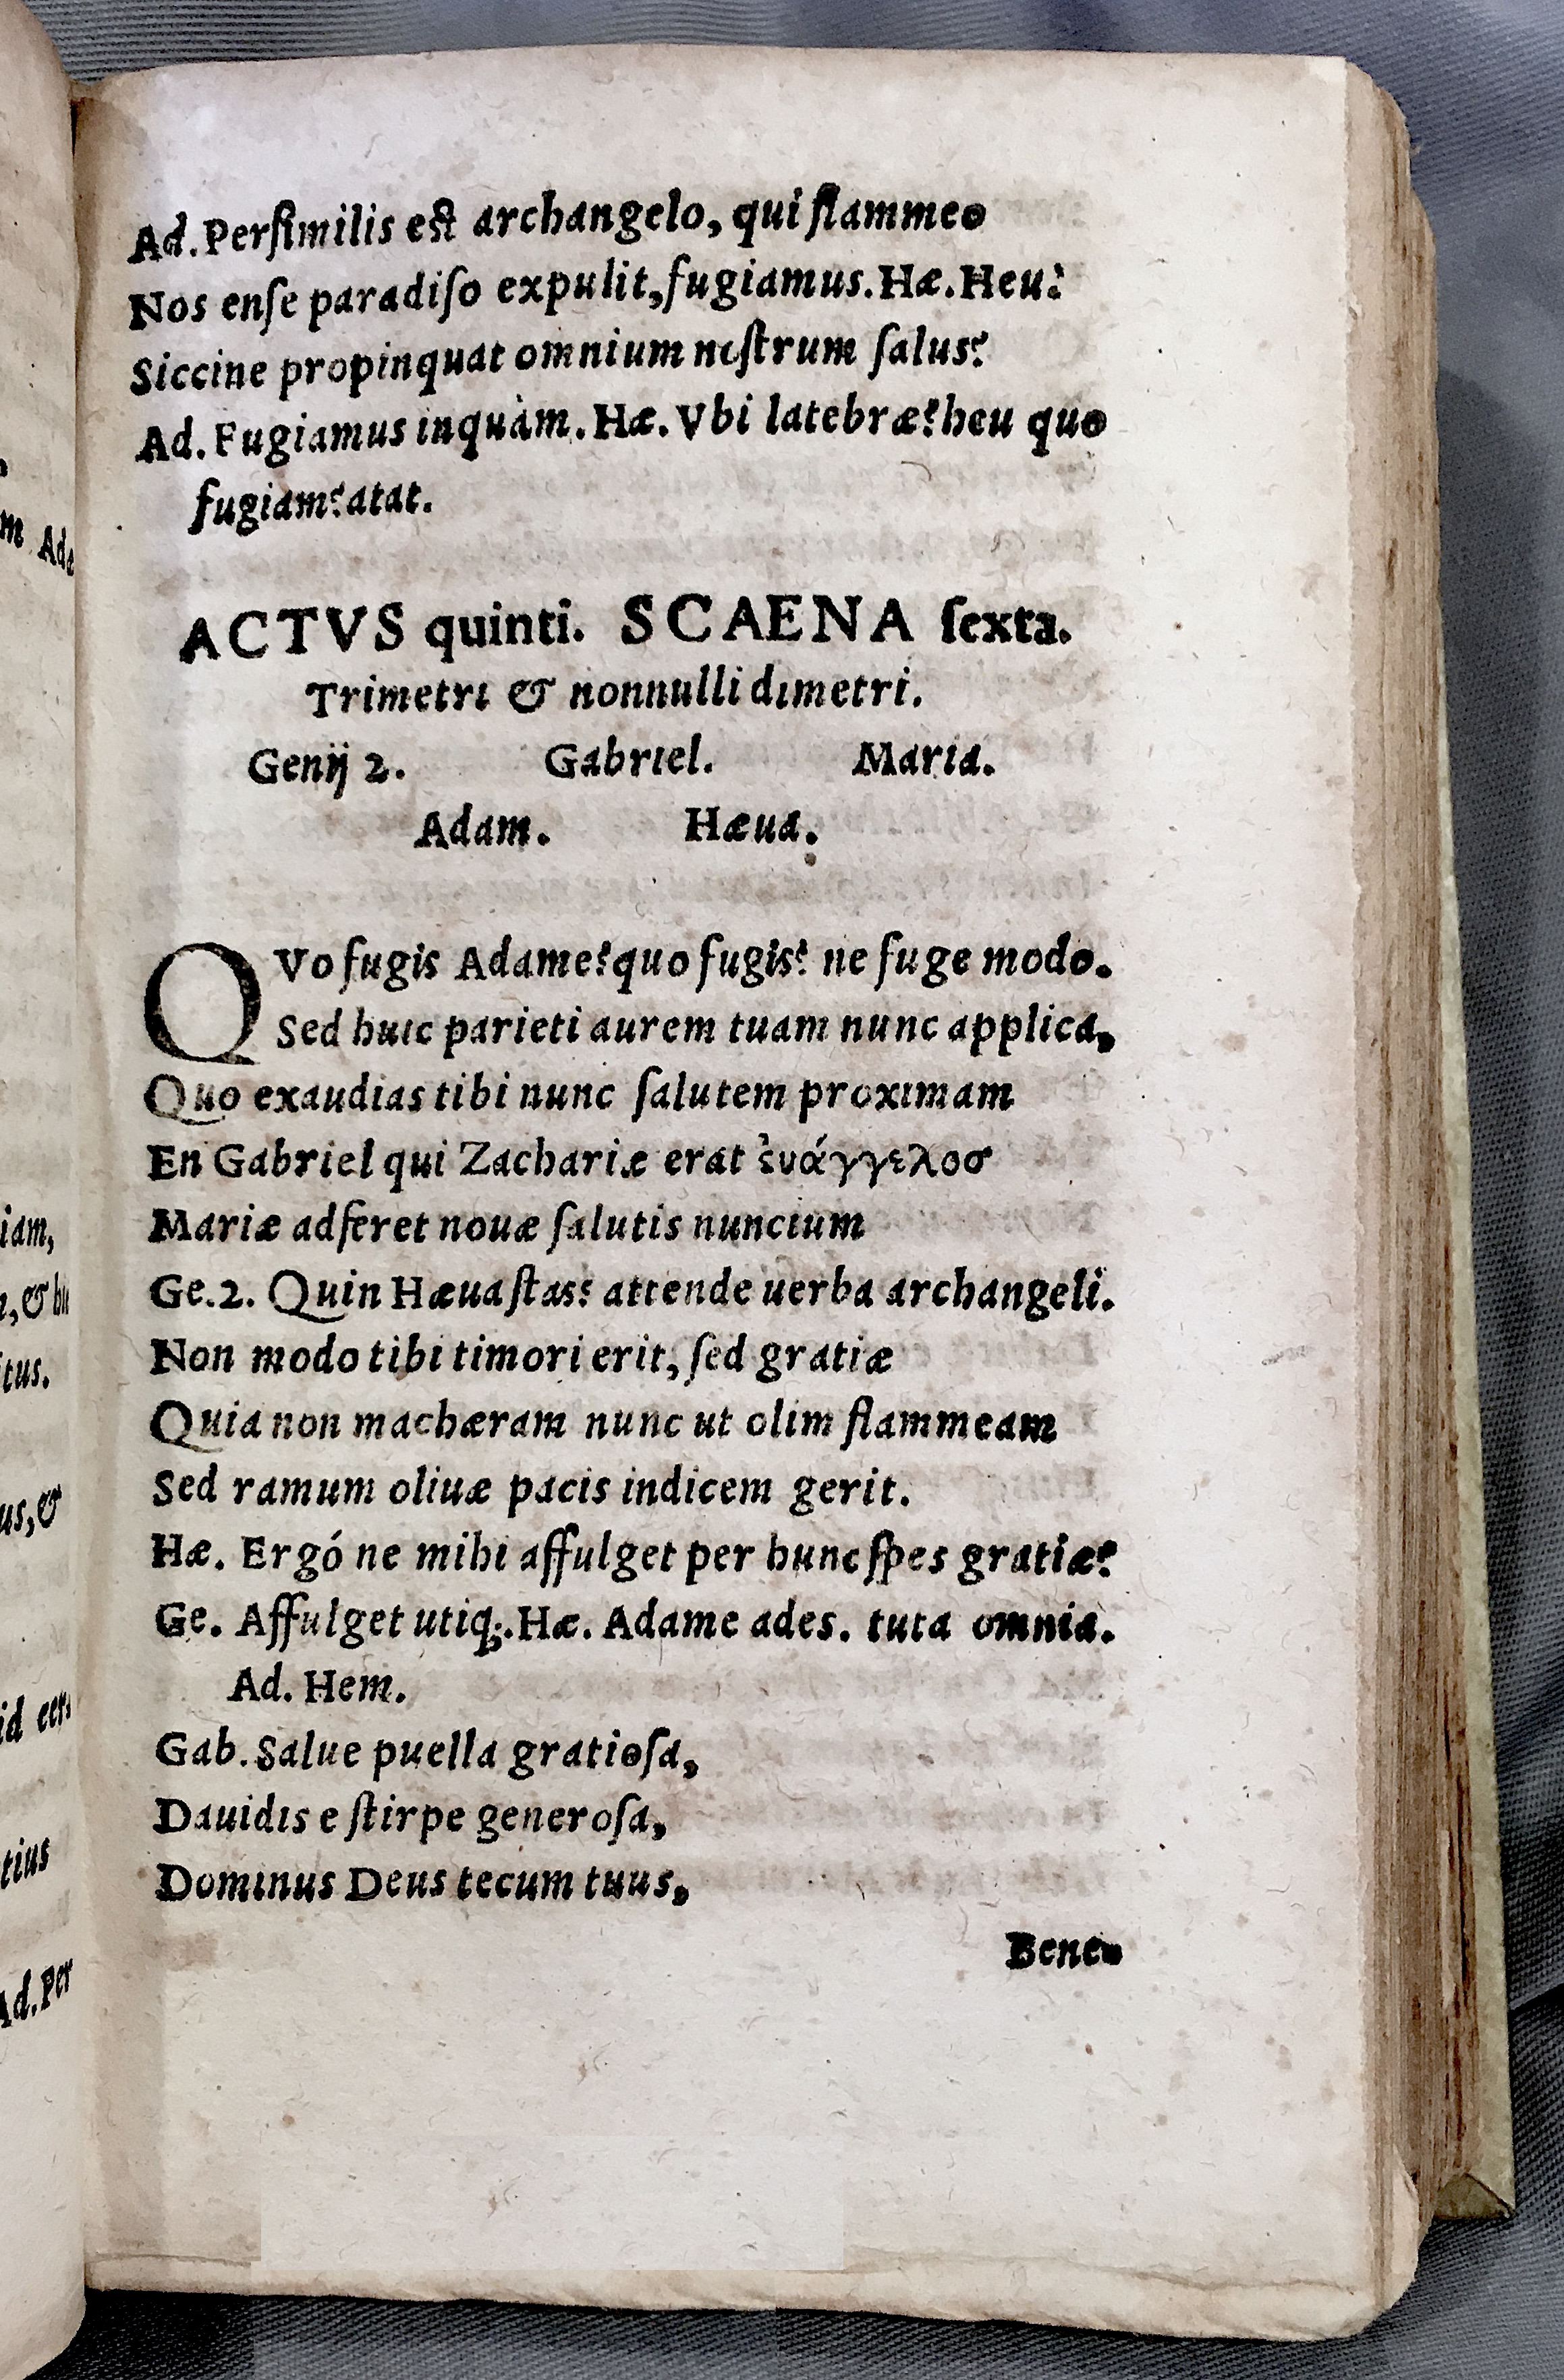 Ad. Perſimilis eſt archangelo, qui flammeo
Nos enſe paradiſo expulit, fugiamus. Hæ. Heu?
Siccine propinquat omnium noſtrum ſalus?
Ad. Fugiamus inquàm. Hæ. Vbi latebræ? heu quo
fugiam? atat.
ACTVS quinti. SCAENA ſexta.
Trimetri & nonnulli dimetri.
Genij 2. Gabriel. Maria.
Adam. Hæua.
QVo fugis Adame? quo fugis? ne fuge modo.
Sed huic parieti aurem tuam nunc applica,
Quo exaudias tibi nunc ſalutem proximam
En Gabriel qui Zachariæ erat ἐυάγγελοσ
Mariæ adferet nouæ ſalutis nuncium
Ge. 2. Quin Hæua ſtas? attende uerba archangeli.
Non modo tibi timori erit, ſed gratiæ
Quia non machæram nunc ut olim flammeam
Sed ramum oliuæ pacis indicem gerit.
Hæ. Ergó ne mihi affulget per hunc ſpes gratiæ?
Ge. Affulget utiq;. Hæ. Adame ades. tuta omnia.
Ad. Hem.
Gab. Salue puella gratioſa,
Dauidis e ſtirpe generoſa,
Dominus Deus tecum tuus,
Bene-
m Ada
iam,
tus.
us, &
tius
Ad. Per